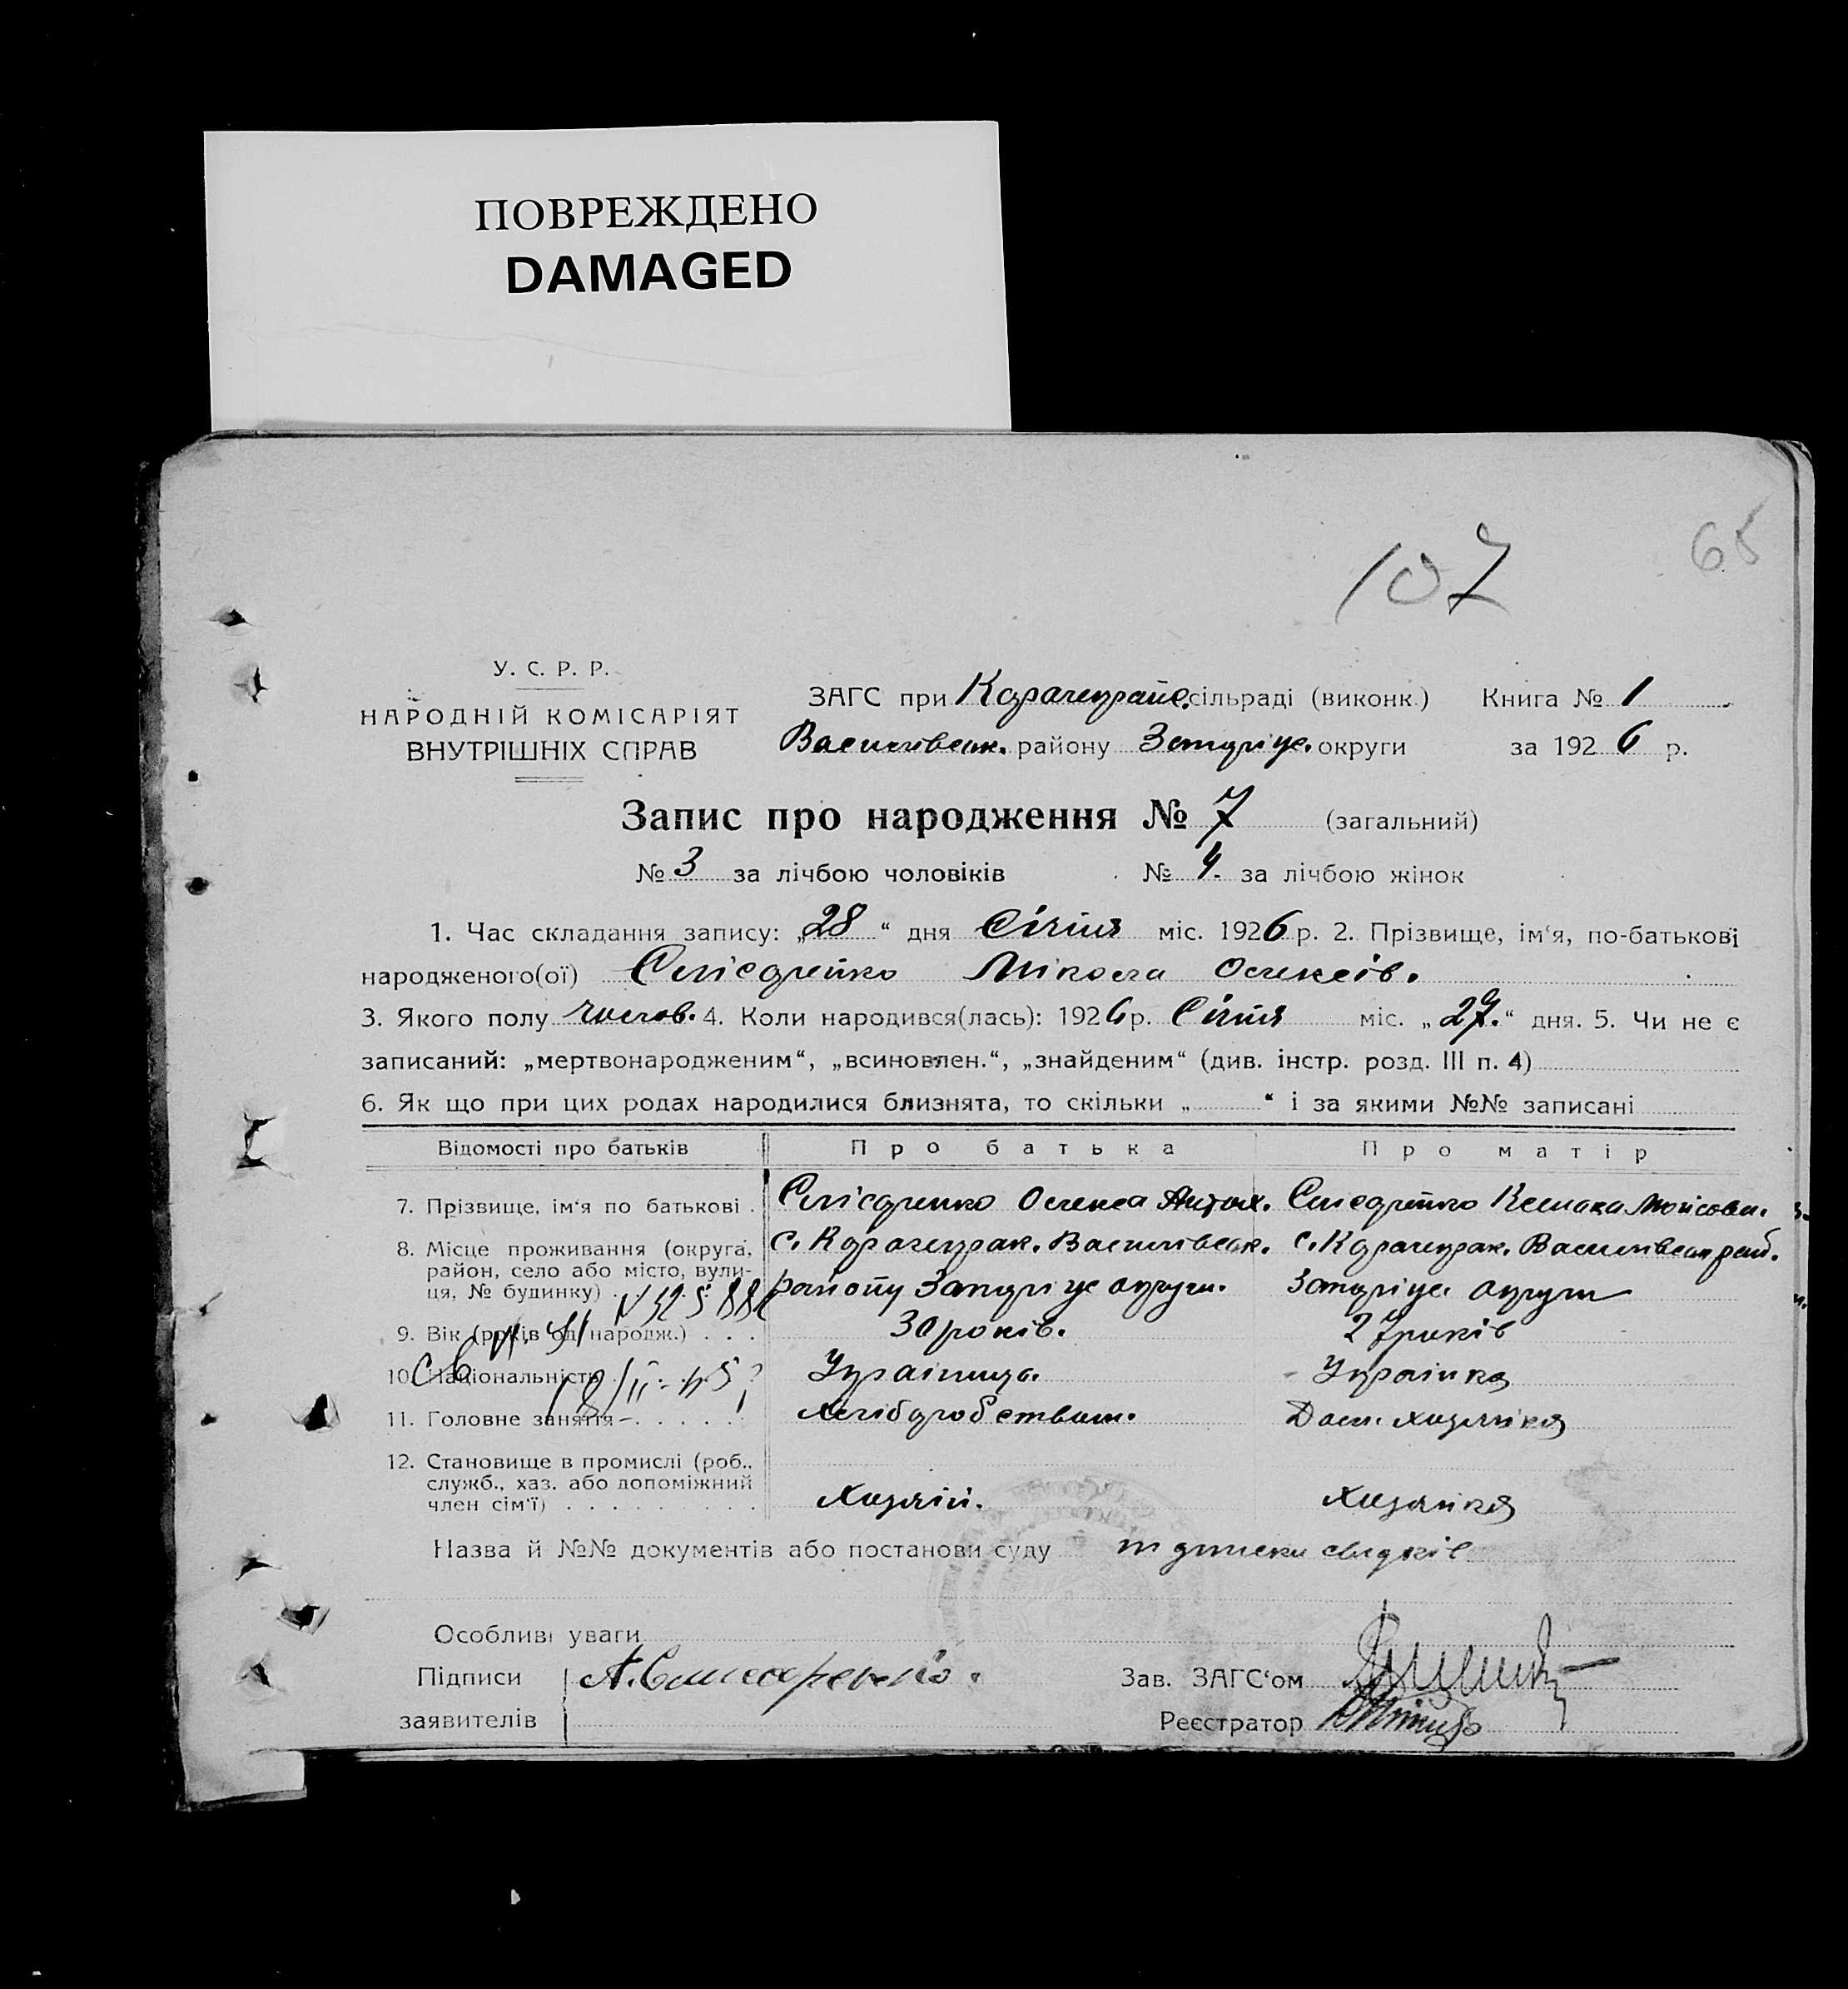 ПОВРЕЖДЕНО
DAMAGED
107
65
У. С. Р. Р.
НАРОДНІЙ КОМІСАРІЯТ
ВНУТРІШНІХ СПРАВ
ЗАГС при сільраді (виконк.) Книга № 1
Василівськ. району округи за 1926 р.
Запис про народження № 7 (загальний)
№ 3 за лічбою чоловіків № 4. за лічбою жінок
1. Час складання запису: „28“ дня Січня міс. 1926 р. 2. Прізвище, ім‘я, по-батькові
народженого(ої) Мікола Олексів.
3. Якого полу чолов. 4. Коли народився(лась): 1926 р. Січня міс. „27.“ дня. 5. Чи не є
записаний: „мертвонародженим“, „всиновлен.“, „знайденим“ (див. інстр. розд. III п. 4)
6. Як що при цих родах народилися близнята, то скільки „ “ і за якими №№ записані
Відомості про батьків Про батька Про матір
7. Прізвище, ім‘я по батькові . Олекса Антон.
8. Місце проживання (округа, с. Василівськ. с. Василівськ рай.
район, село або місто, вули-
ця, № будинку) . району округи. округи
9. Вік (років од народж.) . . . 30 років. 27 років
10. Національність Українець. Українка
11. Головне заняття . . . . . хліборобством. Дом. хазяйка
12. Становище в промислі (роб.,
служб., хаз. або допоміжний
член сім‘ї) . . . . . . . . . Хазяїн. хазяйка
Назва й №№ документів або постанови суду підписки свідків
Особливі уваги
Підписи Зав. ЗАГС‘ом
заявителів Реєстратор